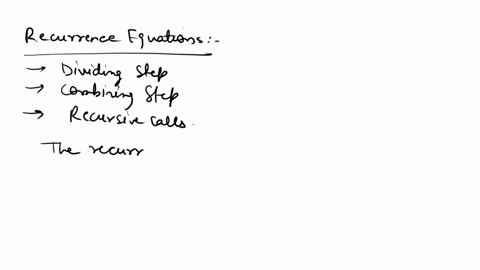 Recurrence Equations:-
→ Dividing Step
→ Combining Step
→ Recursive calls.
The recurr